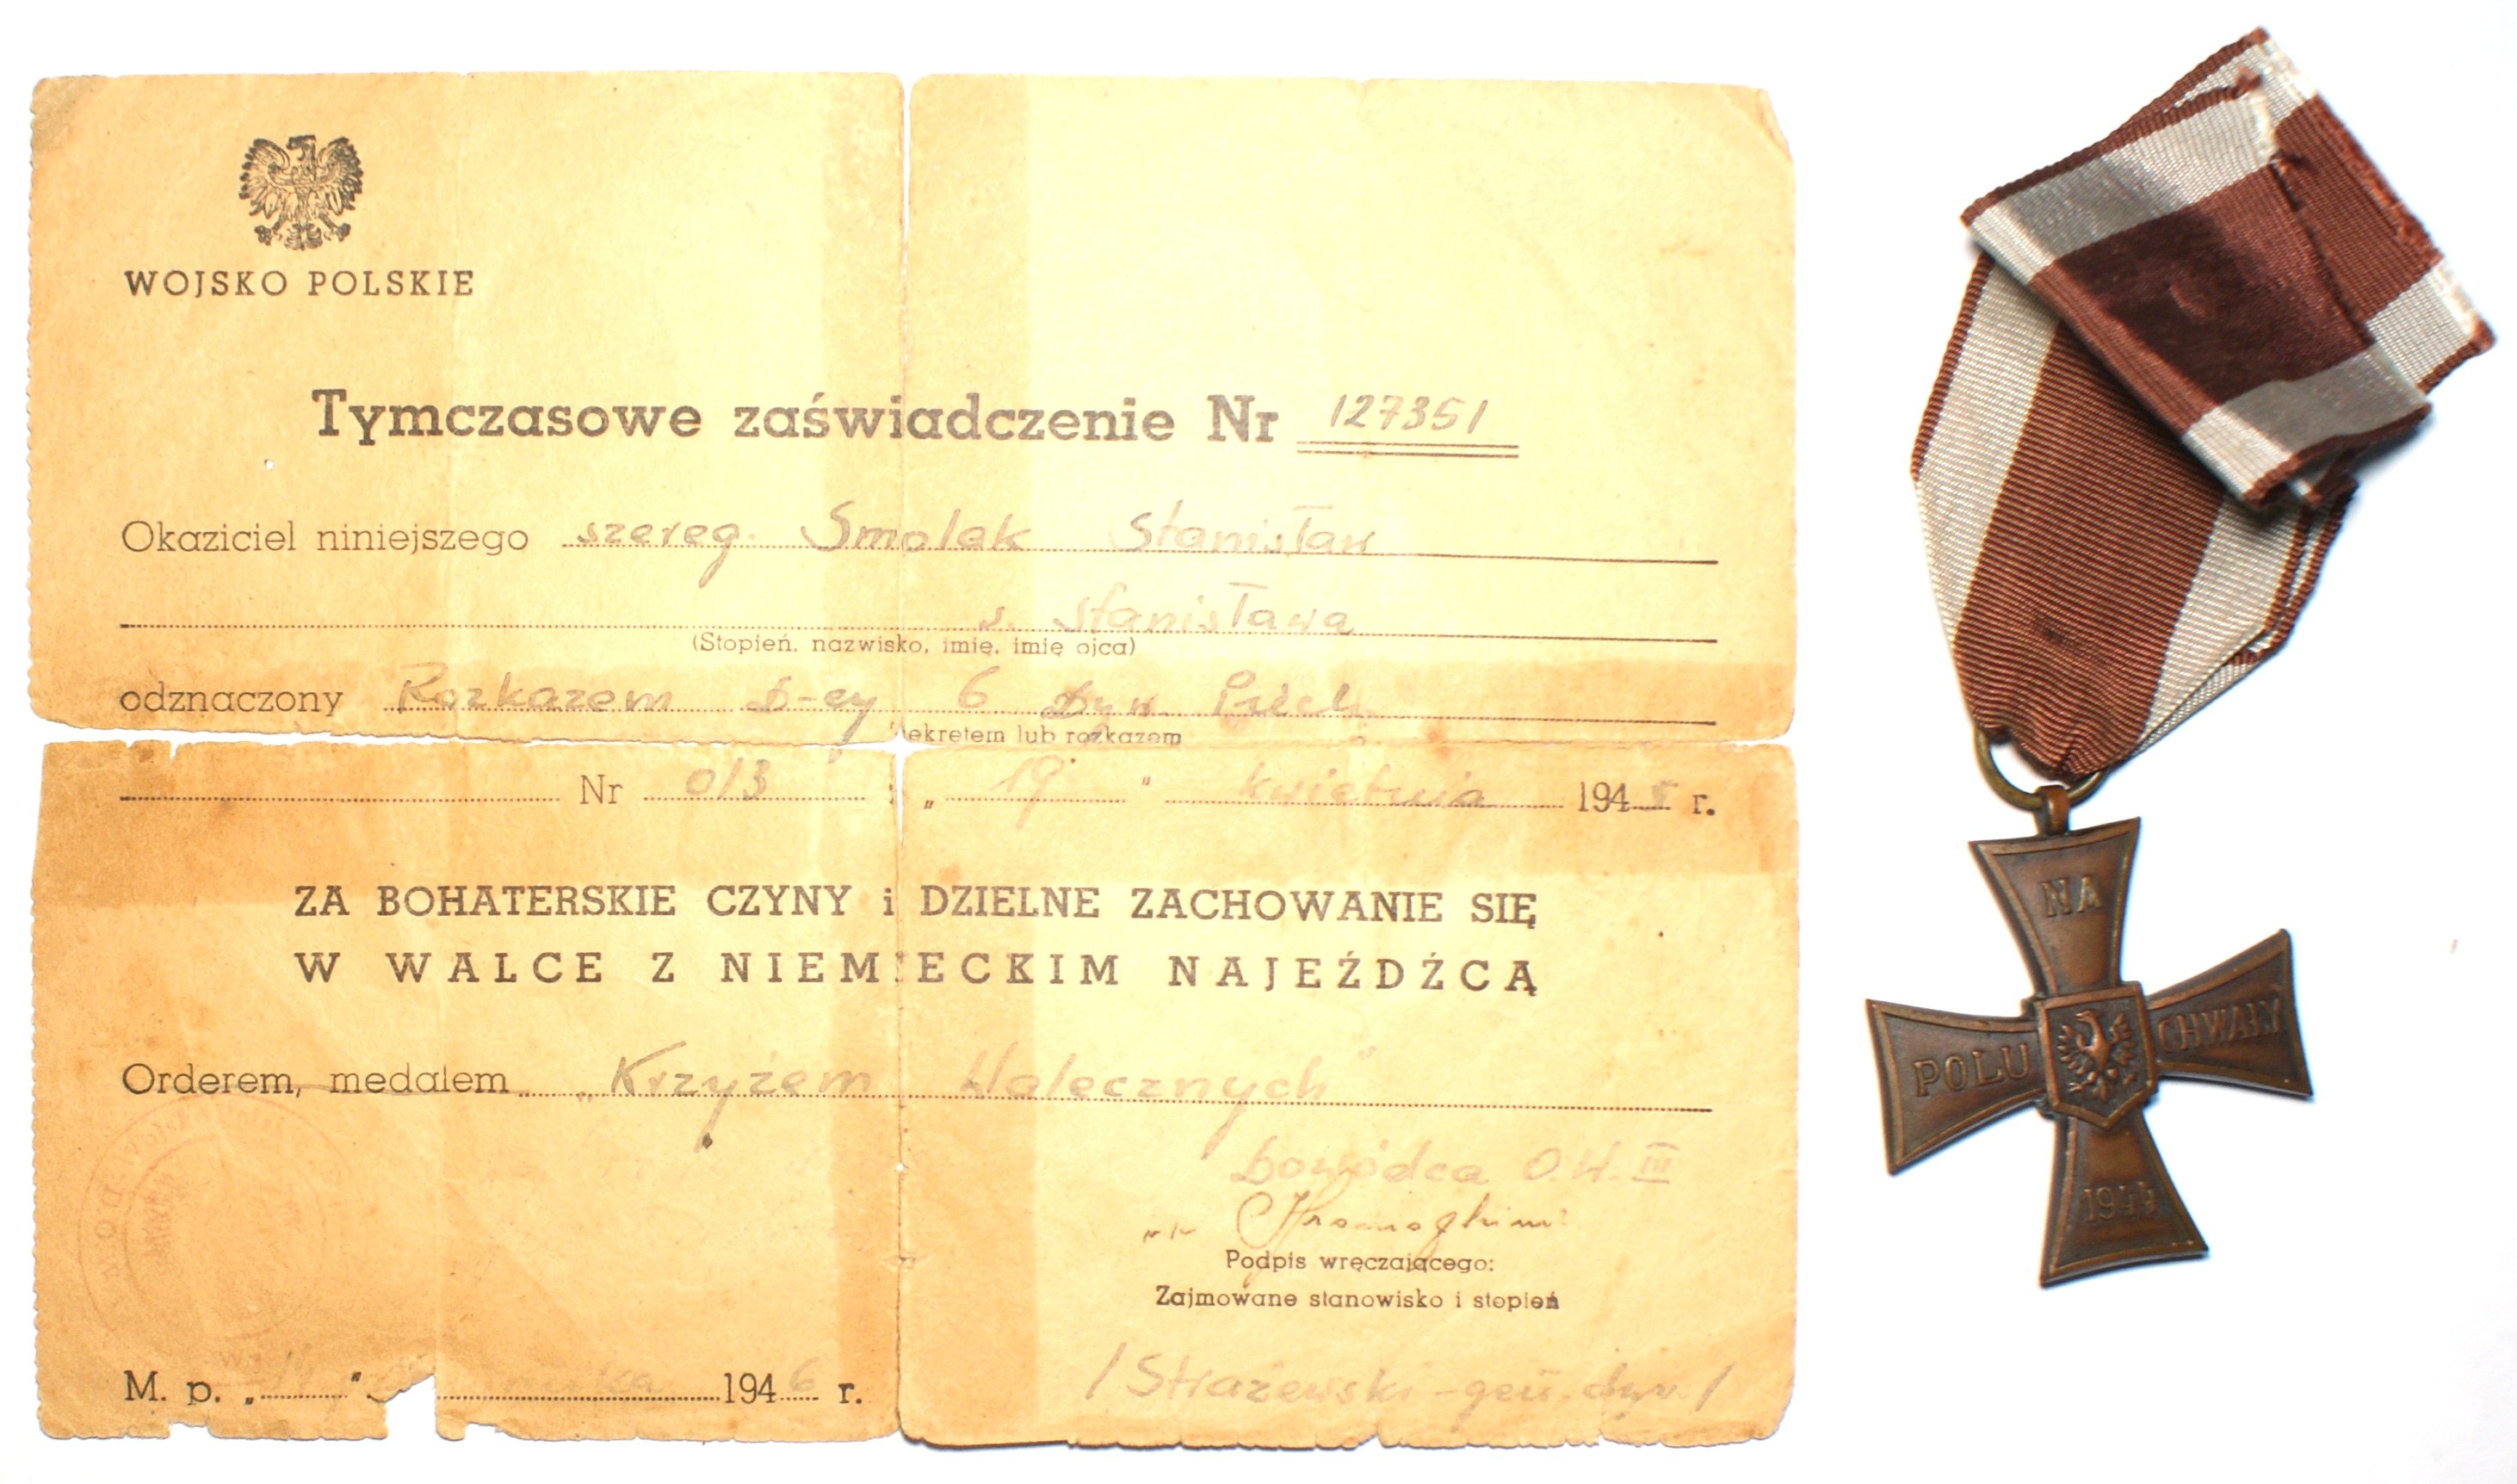 WOJSKO POLSKIE
Tymczasowe zaświadczenie Nr 127351
Okaziciel niniejszego szereg. Smolak Stanisław
s. Stanisława
(Stopień, nazwisko, imię, imię ojca)
odznaczony Rozkazem D-cy 6 Dyw. Piech.
ekretem lub rozkazem
Nr 013 „ 19 " kwietnia 1945 r.
ZA BOHATERSKIE CZYNY i DZIELNE ZACHOWANIE SIĘ
W WALCE Z NIEMIECKIM NAJEŹDŹCĄ
Orderem, medalem „Krzyżem Walecznych"
Dowódca O.W. III
Podpis wręczającego:
Zajmowane stanowisko i stopień
M. p. „ " 1946 r.
/Strażewski gen. dyw./
NA
POLU CHWAŁY
1944